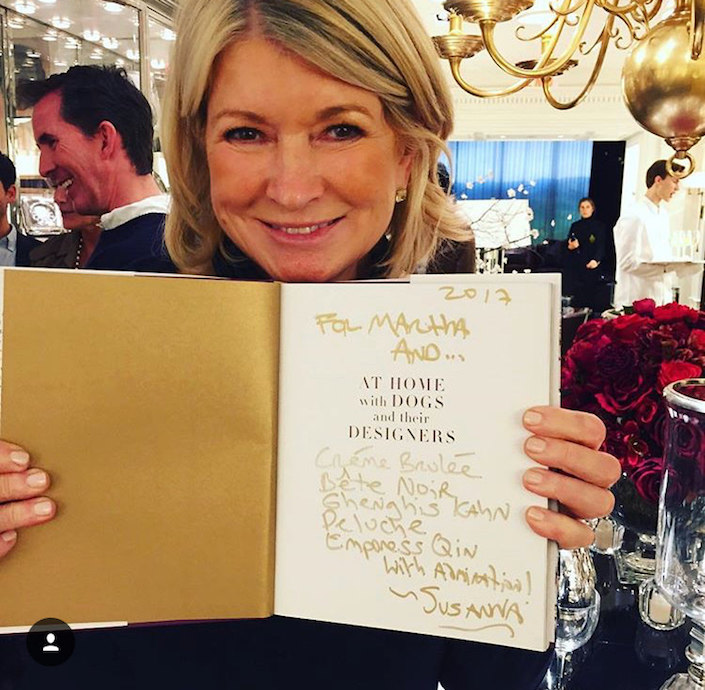 2017
FOR MARTHA
AND...
AT HOME
with DOGS
and their
DESIGNERS
Créme Brulée
Bête Noir
Ghenghis Kahn
Peluche
Empress Qin
With Admiration!
~Susanna